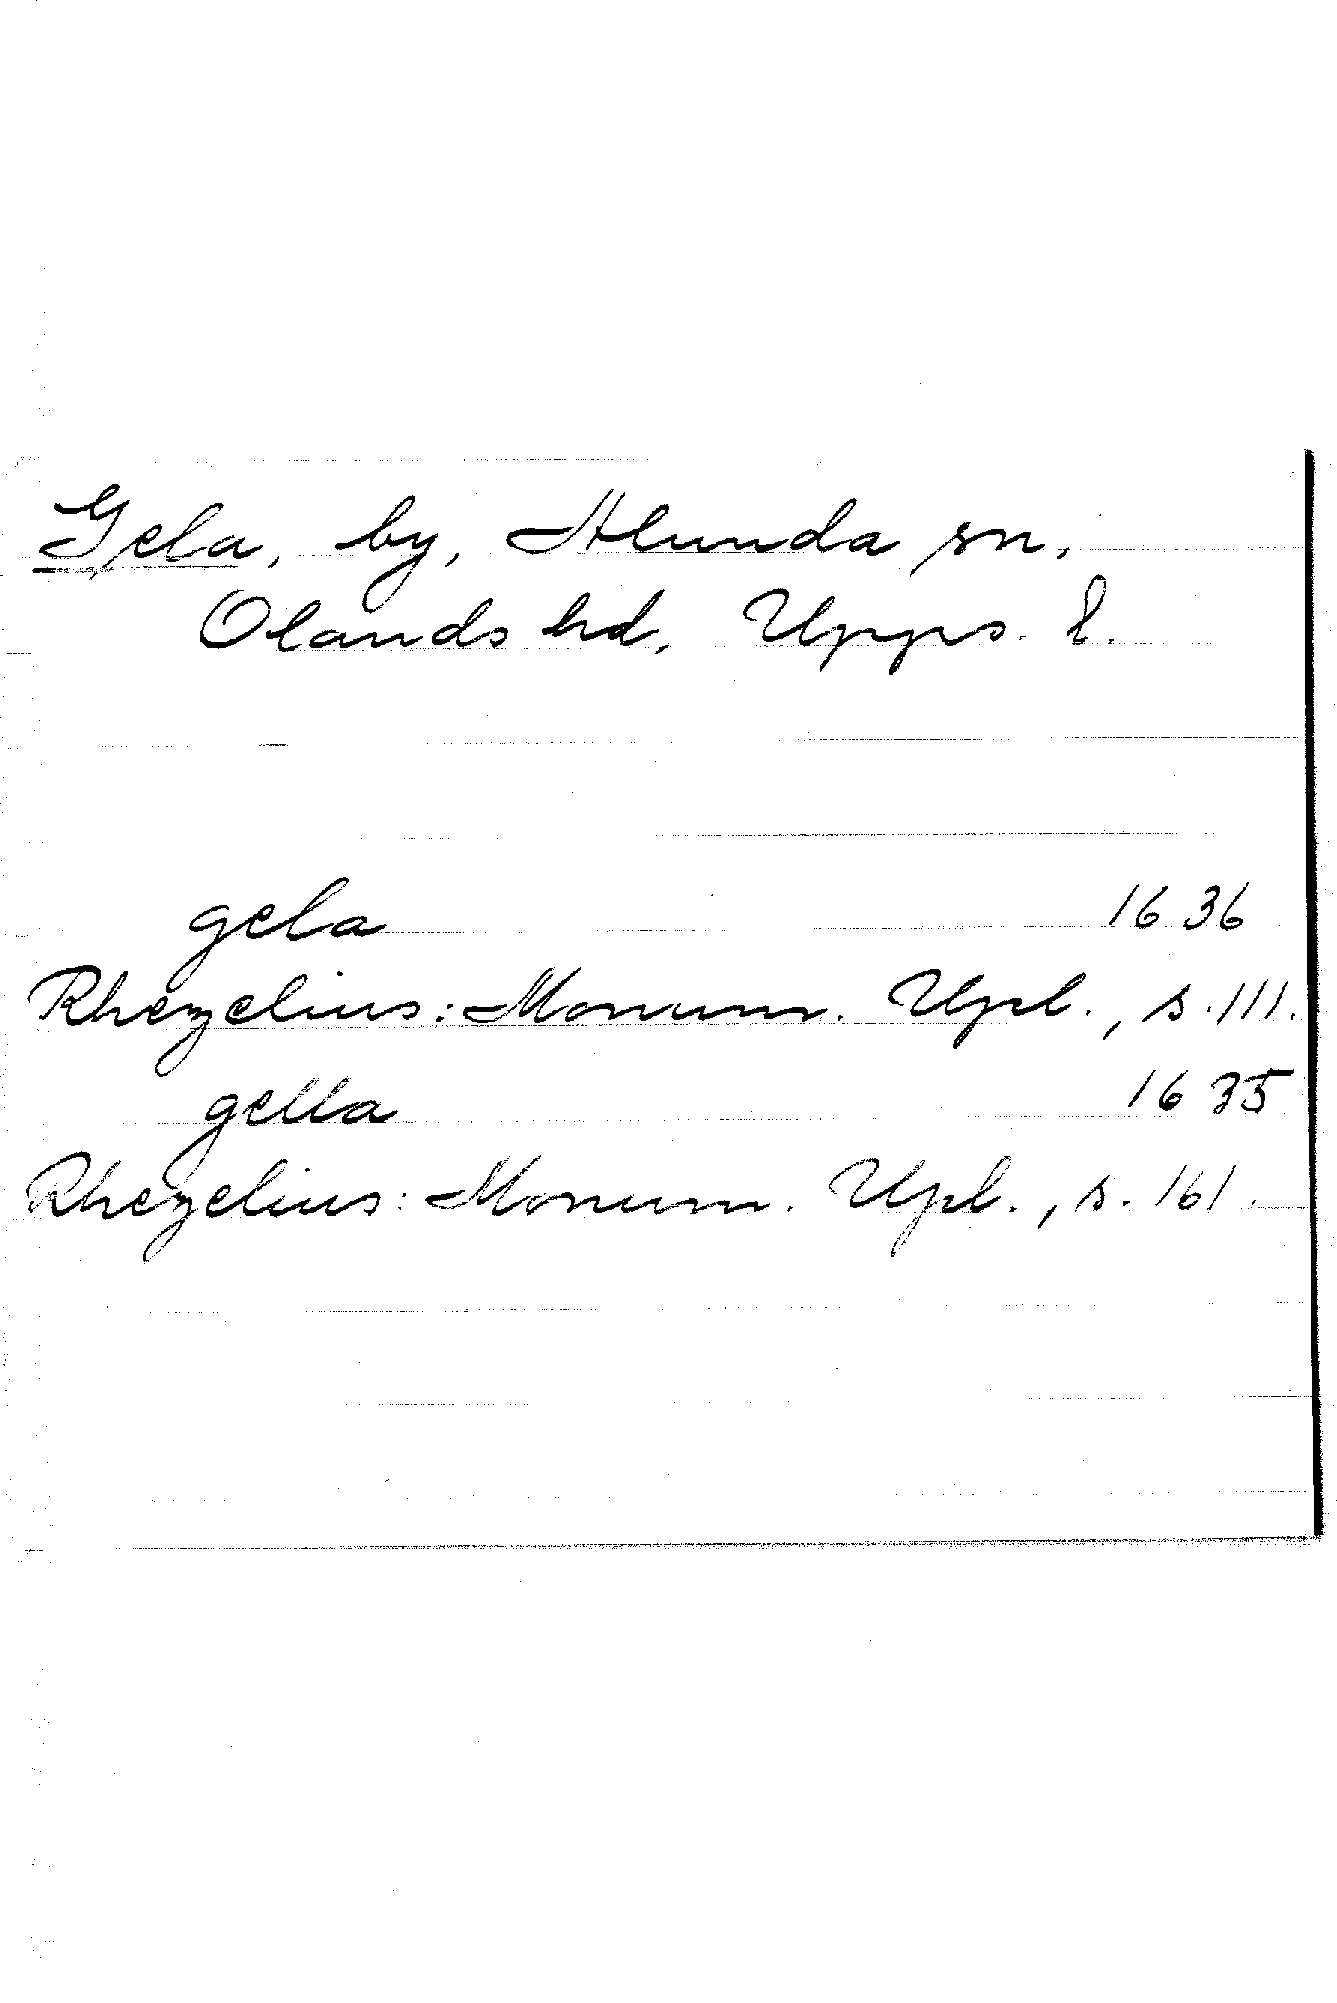 Gela, by, Alunda sn,
Olands hd, Upps. l.
gela 1636
Rhezelius: Monum. Upl., s. 111.
gella 1635
Rhezelius: Monum. Upl., s. 161.